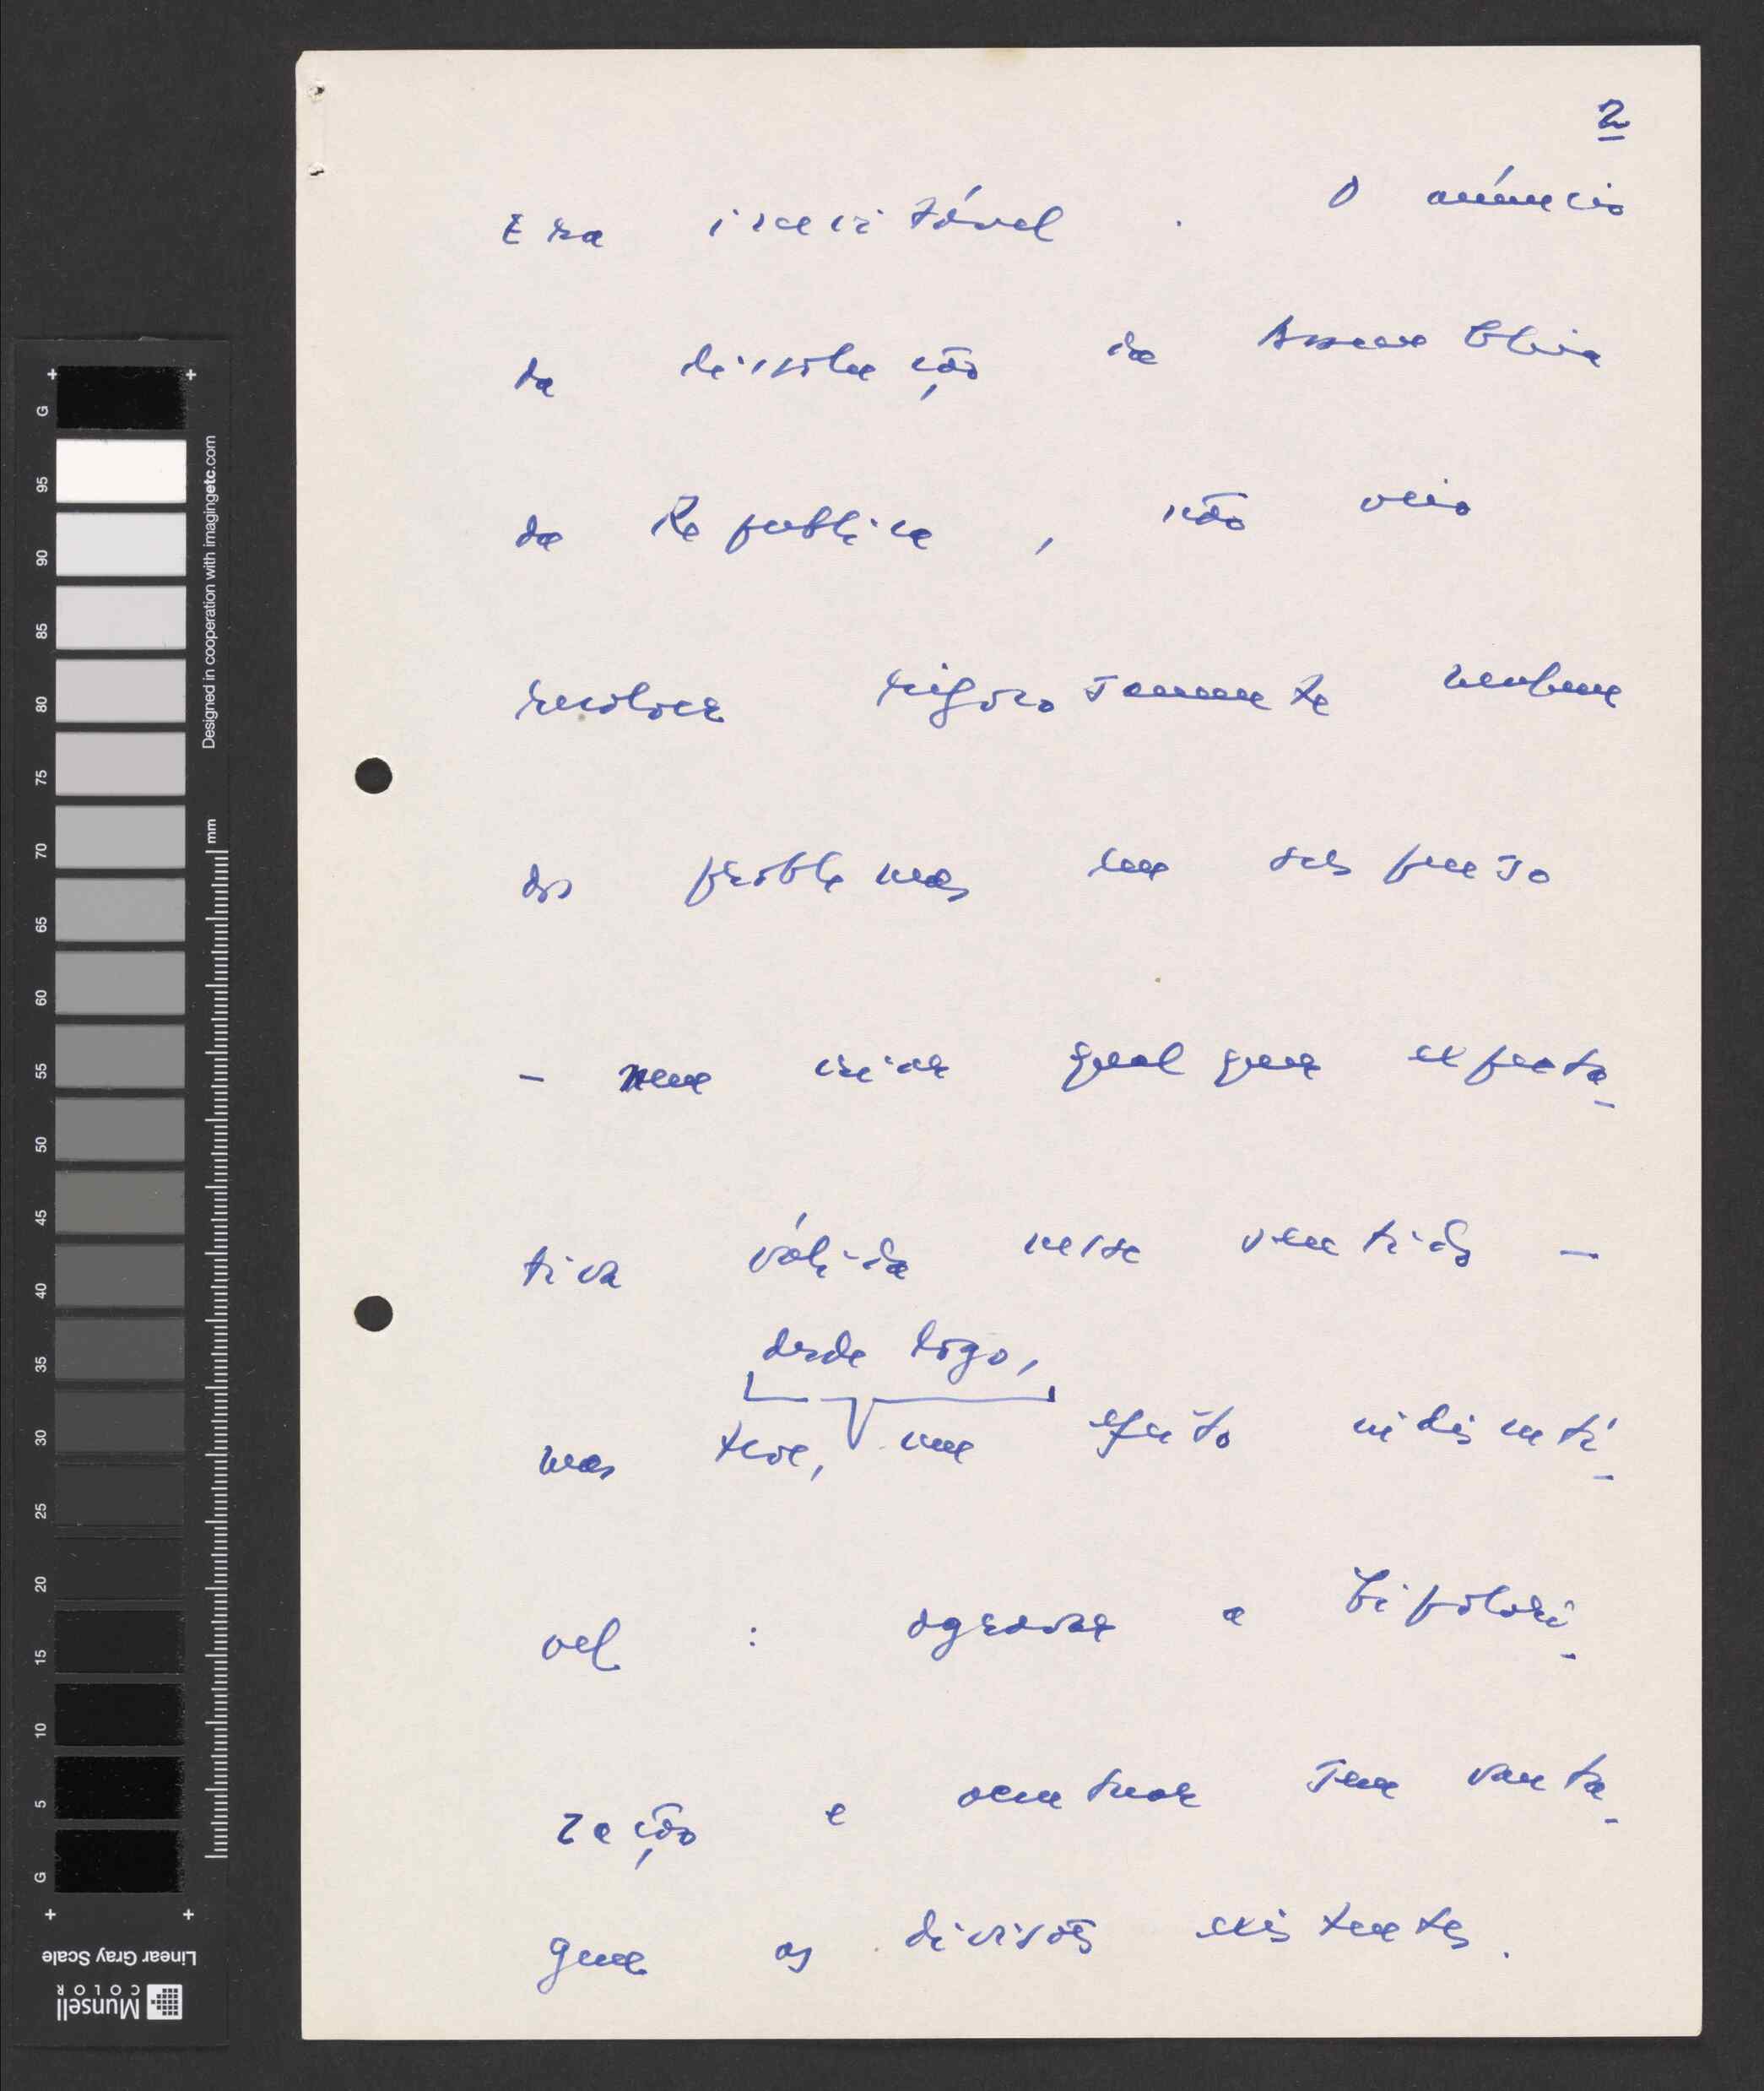 2
Era inevitável . O anúncio
da dissolução da Assembleia
da Republica , não veio
resolver rigorosamente nenhum
dos problemas em suspenso
- nem criar qualquer expecta-
tiva válida nesse sentido -
desde logo,
mas teve, um efeito indismenti-
vel : agravar a bipolari-
zação e acentuar sem vanta-
gem as divisões existentes .
G 95 90 85 80 75 70 65 60 55 50 45 40 35 30 25 20 15 10 5 G
Designed in cooperation with imagingetc.com
mm
Linear Gray Scale
Munsell
COLOR